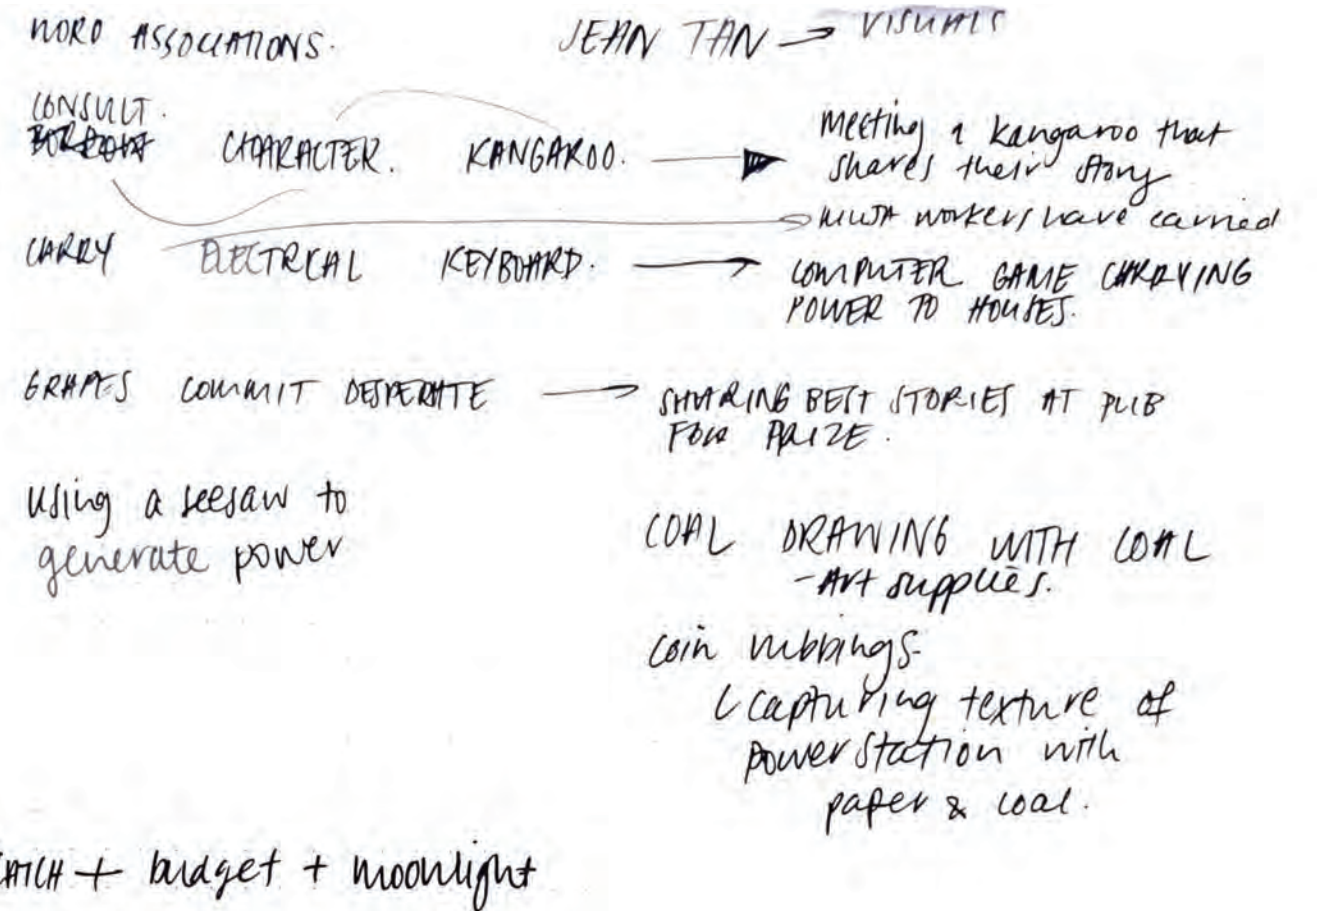 WORD ASSOCIATIONS. JEAN TAN → VISUALS
CONSULT.
CHARACTER. KANGAROO. → Meeting a kangaroo that
shares their story
→ workers have carried
CARRY ELECTRICAL KEYBOARD. → COMPUTER GAME CARRYING
POWER TO HOUSES.
GRAPES COMMIT DESPERATE → SHARING BEST STORIES AT PUB
FOR PRIZE.
using a seesaw to
generate power
COAL DRAWING WITH COAL
- Art supplies.
coin rubbings.
capturing texture of
power station with
paper & coal.
CATCH + budget + moonlight